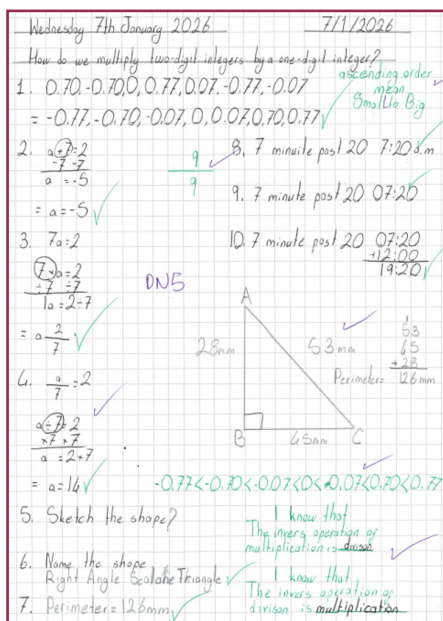 Wednesday 7th January 2026 7/1/2026
How do we multiply two-digit integers by a one-digit integer?
1. 0.70, -0.70, 0, 0.77, 0.07, -0.77, -0.07
= -0.77, -0.70, -0.07, 0, 0.07, 0.70, 0.77
ascending order
mean
Small to Big
2. a+7=2
-7 -7
a =-5
= a=-5
9
9
3. 7a=2
7×a=2
÷7 ÷7
1a=2÷7
= a 2/7
DN5
4. a/7=2
a÷7=2
×7 ×7
a =2×7
= a=14
5. Sketch the shape?
6. Name the shape
Right Angle Scalane Triangle
7. Perimeter=126mm
8. 7 minuite past 20 7:20a.m
9. 7 minute past 20 07:20
10. 7 minute past 20 07:20
+12:00
19:20
A
28mm
53mm
B
45mm
C
1
53
45
+28
Perimeter= 126mm
-0.77<-0.70<-0.07<0<0.07<0.70<0.77
I know that
The invers operation of
multiplication is divison
I know that
The invers operation of
divison is multiplication